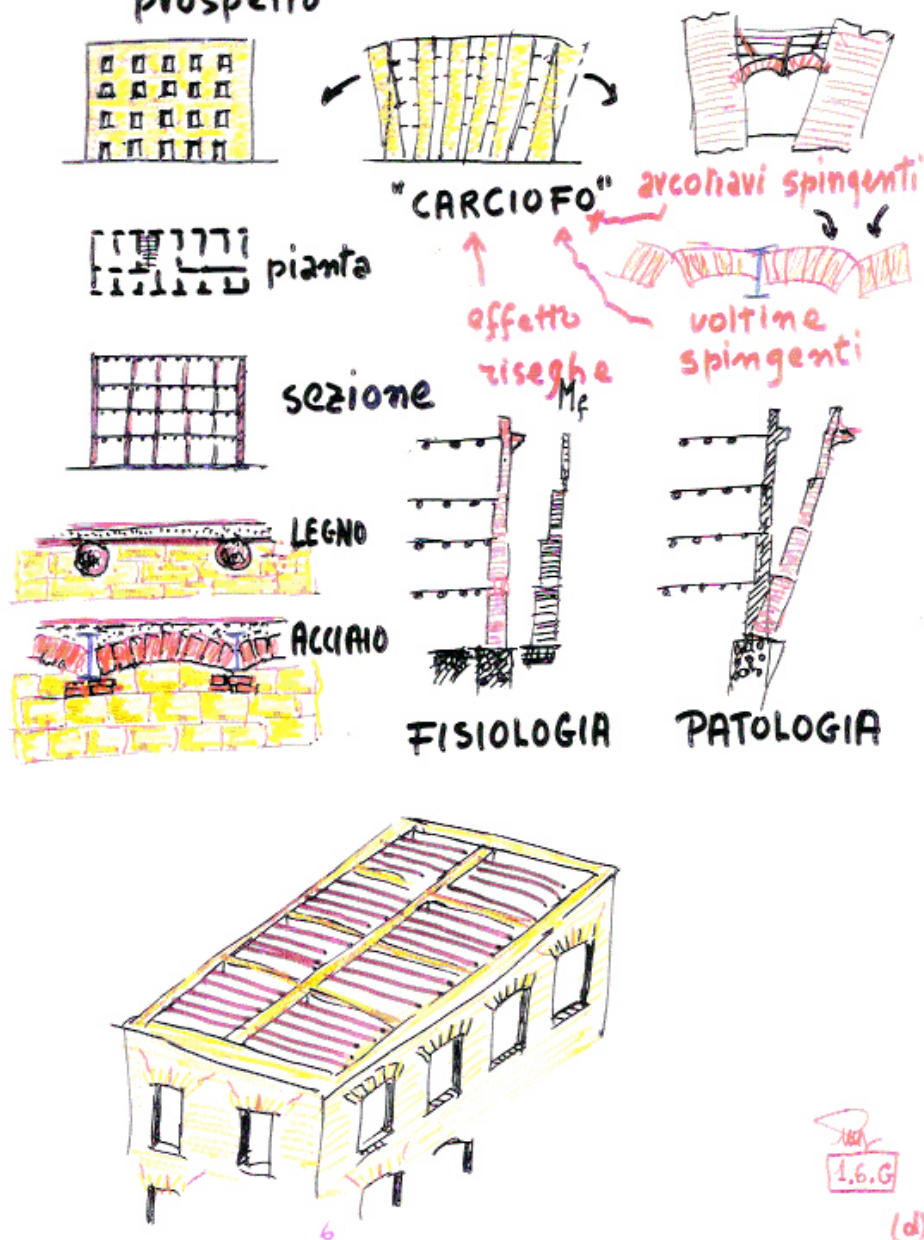 prospetto
"CARCIOFO"
arcotravi spingenti
pianta
effetto
riseghe
voltine
spingenti
sezione
Mf
LEGNO
ACCIAIO
FISIOLOGIA
PATOLOGIA
1.6.G
6
(d)